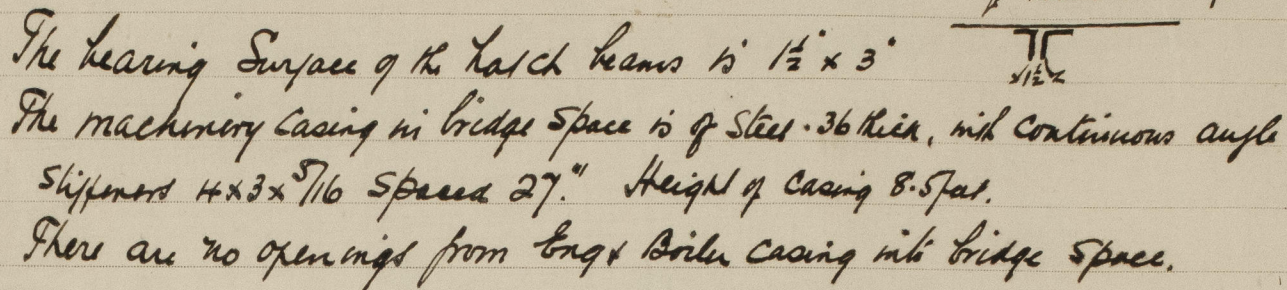 The bearing Surface of the hatch beams is 1½" x 3"
1½
The machinery Casing in bridge Space is of Steel .36 thick, with continuous angle
Stiffeners 4x3x5/16 Spaced 27". Height of Casing 8.5 feet.
There are no openings from Eng & Boiler Casing into bridge Space.